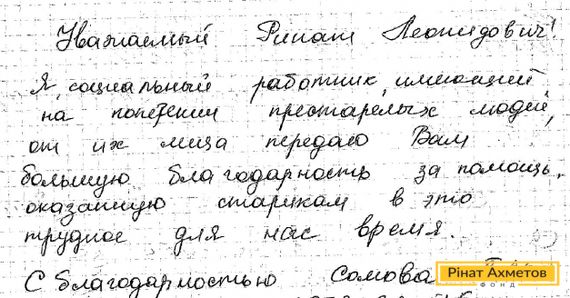 Уважаемый Ринат Леонидович!
Я, социальный работник, имеющий
на попечении престарелых людей,
от их лица передаю Вам
большую благодарность за помощь,
оказанную старикам в это
трудное для нас время.
С благодарностью Сомова
Рінат Ахметов
ФОНД